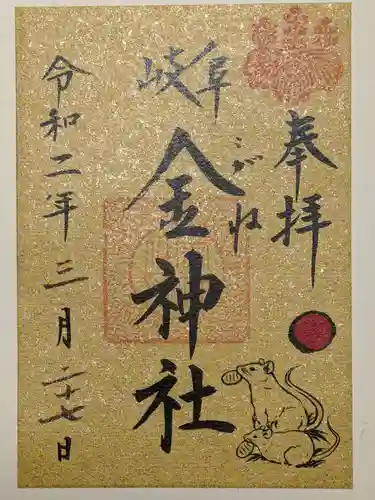 奉拝
岐阜
金神社
こがね
令和二年三月二十七日